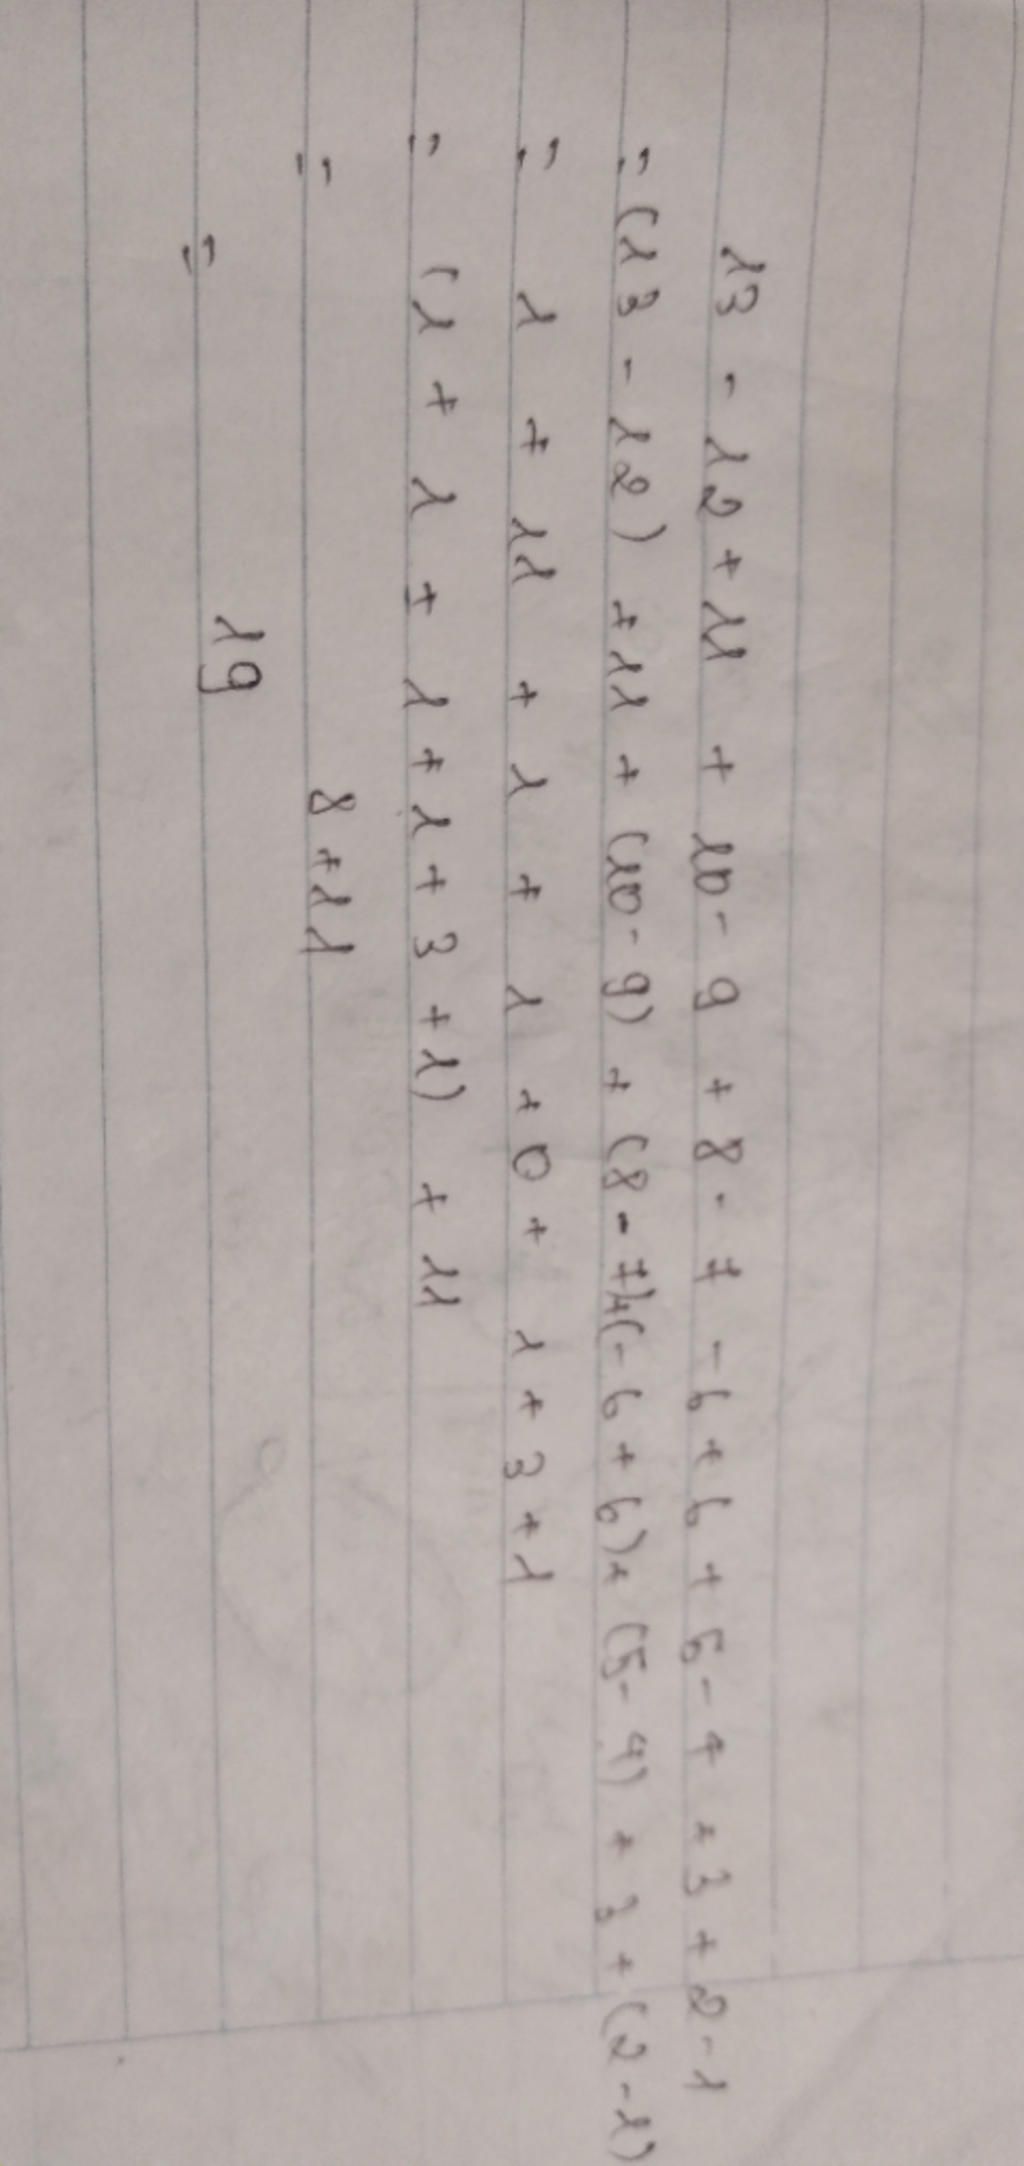 13 - 12 + 11 + 10 - 9 + 8 - 7 - 6 + 6 + 5 - 4 + 3 + 2 - 1
= (13 - 12) + 11 + (10 - 9) + (8 - 7) + (- 6 + 6) + (5 - 4) + 3 + (2 - 1)
= 1 + 11 + 1 + 1 + 0 + 1 + 3 + 1
= (1 + 1 + 1 + 1 + 3 + 1) + 11
= 8 + 11
= 19